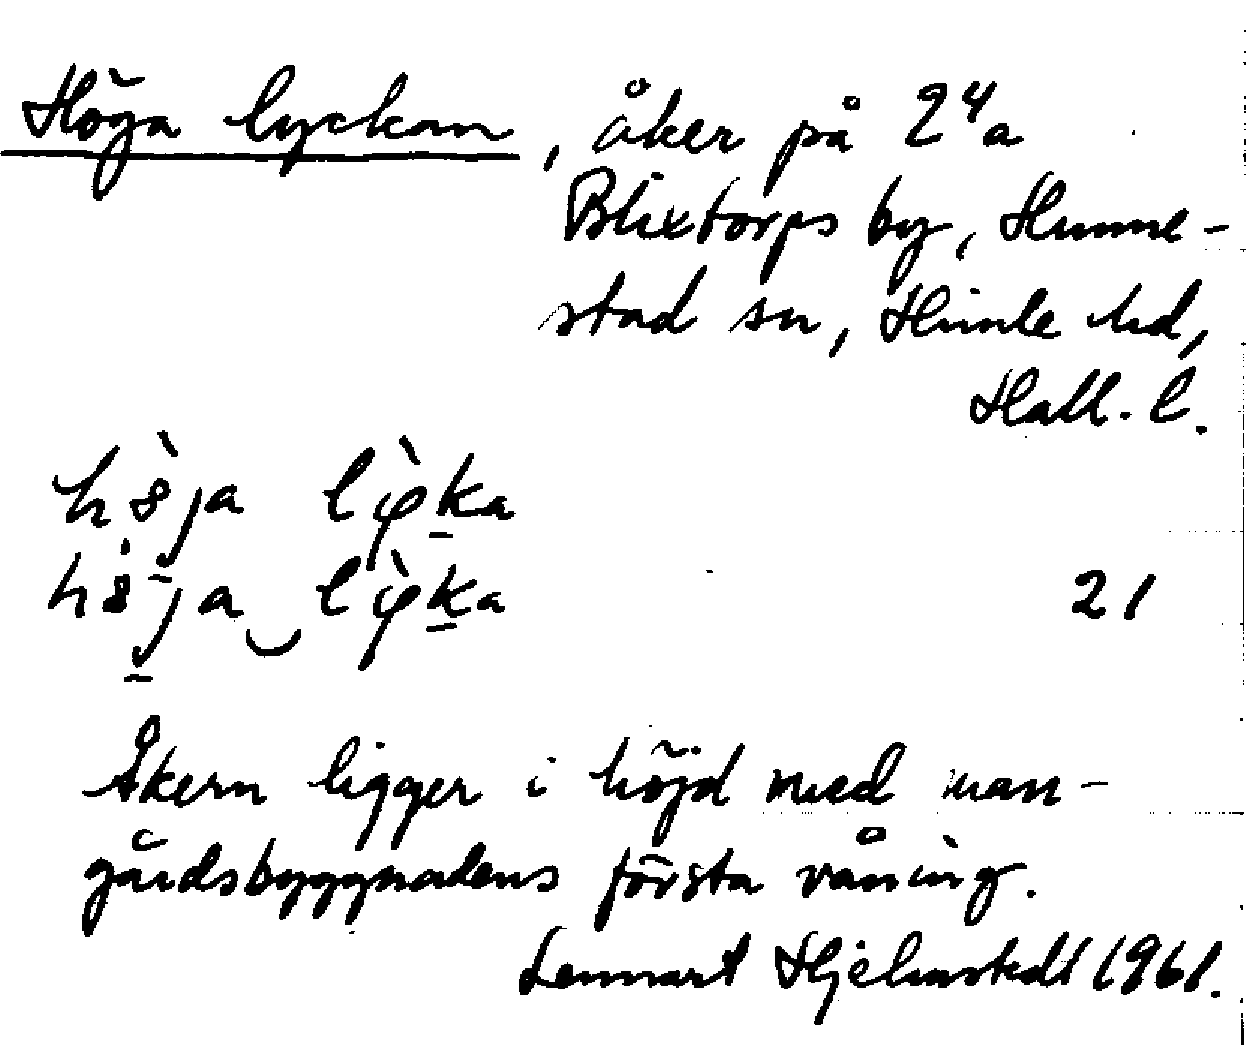 Höga lyckan, åker på 2⁴a
Blixtorps by, Hunne-
stad sn, Himle hd,
Hall. l.
hø̀ja lỳka
hø̀ja‿lỳka 21
Åkern ligger i höjd med man-
gårdsbyggnadens första våning.
Lennart Hjelmstedt 1961.